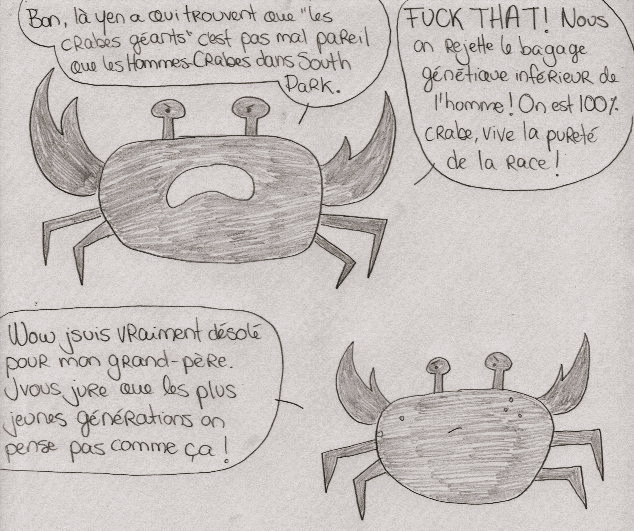 Bon, là yen a qui trouvent que "les
crabes géants" c'est pas mal pareil
que les Hommes-Crabes dans South
Park.
FUCK THAT! Nous
on rejette le bagage
génétique inférieur de
l'homme! On est 100%
crabe, vive la pureté
de la race!
Wow jsuis vraiment désolé
pour mon grand-père.
Jvous jure que les plus
jeunes générations on
pense pas comme ça!